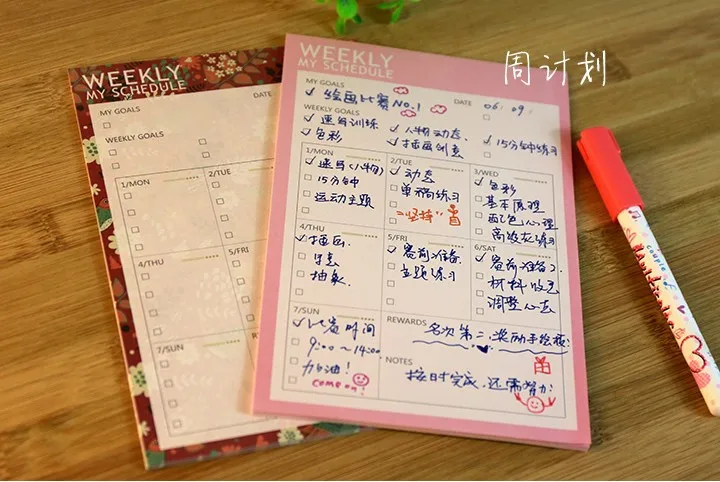 周计划
WEEKLY
MY SCHEDULE
MY GOALS
DATE
WEEKLY GOALS
1/MON
2/TUE
4/THU
5/FRI
7/SUN
WEEKLY
MY SCHEDULE
MY GOALS
DATE 06. 09.
绘画比赛 NO.1
WEEKLY GOALS
速写训练 人物动态 15分钟练习
色彩 插画创意
1/MON
速写(人物)
15分钟
运动主题
2/TUE
动态
单幅练习
"坚持"
3/WED
色彩
基本原理
配色心理
高级灰练习
4/THU
插画
写意
抽象
5/FRI
赛前准备
主题练习
6/SAT
赛前准备2
材料收克
调整心态
7/SUN
比赛时间
9:00~14:00
加油!
come on!
REWARDS
名次第二,奖励手绘板!
NOTES
按时完成,还需努力!
couple